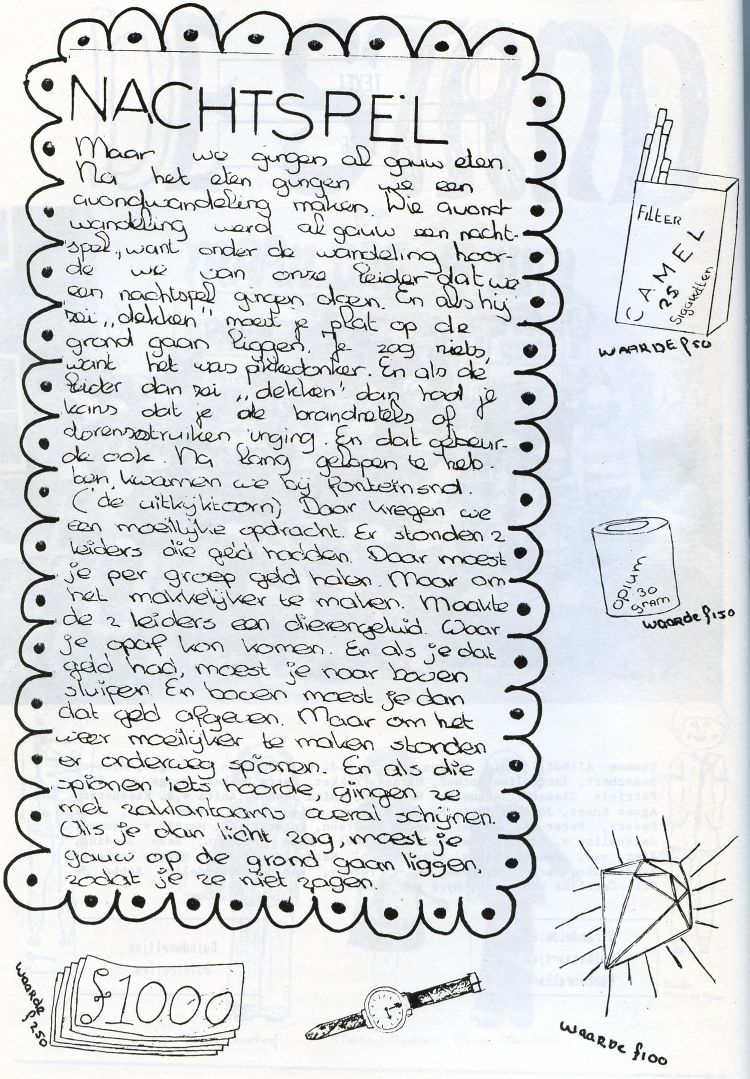 NACHTSPEL
Maar we gingen al gauw eten.
Na het eten gingen we een
avondwandeling maken. Die avond-
wandeling werd al gauw een nacht-
spel, want onder de wandeling hoor-
de we van onze leider dat we
een nachtspel gingen doen. En als hij
zei „dekken” moest je plat op de
grond gaan liggen. Je zag niets,
want het was pikkedonker. En als de
leider dan zei „dekken” dan had je
kans dat je de brandnetels of
dorenstruiken inging. En dat gebeur-
de ook. Na lang gelopen te heb-
ben, kwamen we bij fonteinsnol.
('de uitkijktoorn) Daar kregen we
een moeilijke opdracht. Er stonden 2
leiders die geld hadden. Daar moest
je per groep geld halen. Maar om
het makkelijker te maken. Maakte
de 2 leiders een dierengeluid. Waar
je opaf kon komen. En als je dat
geld had, moest je naar boven
sluipen. En boven moest je dan
dat geld afgeven. Maar om het
weer moeilijker te maken stonden
er onderweg spionen. En als die
spionen iets hoorde, gingen ze
met zaklantaarns overal schijnen.
Als je dan licht zag, moest je
gauw op de grond gaan liggen,
zodat je ze niet zagen.
FILTER
CAMEL
25
Sigaretten
WAARDE f 50
opium
30
gram
WAARDE f 150
WAARDE f 100
£1000
WAARDE
f 250